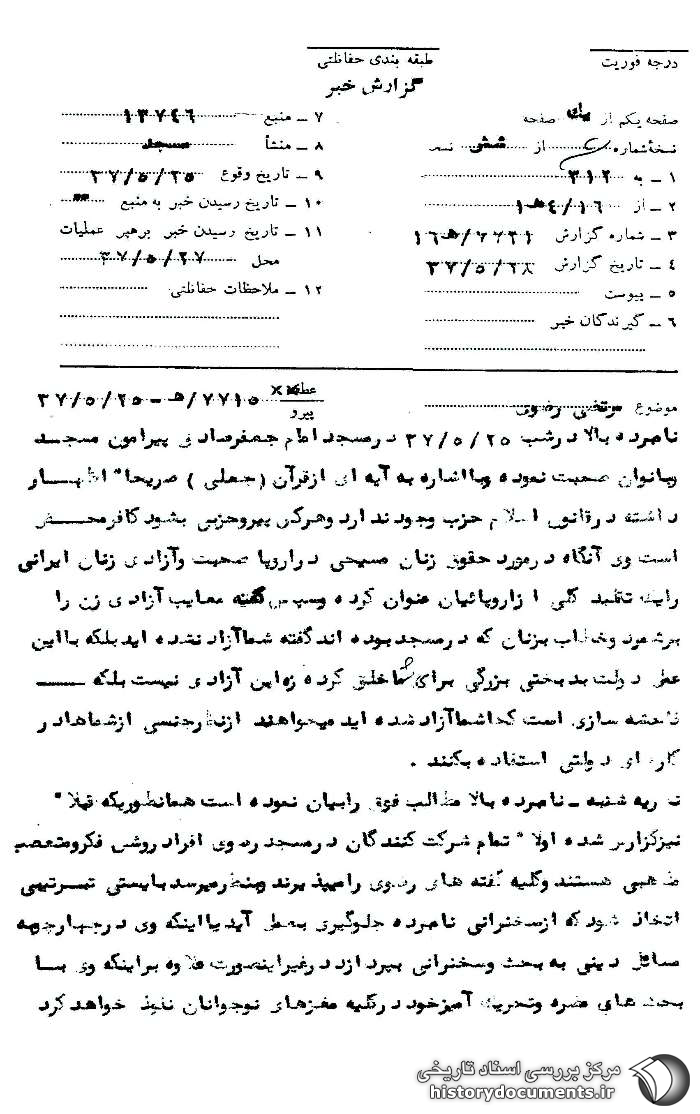 درجه فوریت
طبقه بندی حفاظتی
گزارش خبر
صفحه یکم از یک صفحه
نسخهٔ شماره از شش نسخه
۱ ـ به ۳۱۲
۲ ـ از ۱۶/۴هـ۱
۳ ـ شماره گزارش ۷۷۲۱/هـ۱۶
۴ ـ تاریخ گزارش ۳۷/۵/۲۸
۵ ـ پیوست
۶ ـ گیرندگان خبر
۷ ـ منبع ۱۳۷۴۶
۸ ـ منشأ مسجد
۹ ـ تاریخ وقوع ۳۷/۵/۲۵
۱۰ ـ تاریخ رسیدن خبر به منبع "
۱۱ ـ تاریخ رسیدن خبر برهبر عملیات
محل ۳۷/۵/۲۷
۱۲ ـ ملاحظات حفاظتی
موضوع مرتضی رضوی
عطف ××
پیرو ۷۷۱۵/هـ ـ ۳۷/۵/۲۵
نامبرده بالا در شب ۳۷/۵/۲۵ در مسجد امام جعفرصادق پیرامون مسجد
وبانوان صحبت نموده وبااشاره به آیه ای ازقرآن (جعلی ) صریحا" اظهـــار
داشته درقانون اسلام حزب وجود ندارد وهرکس پیروحزبی بشود کافر محـــض
است وی آنگاه درمورد حقوق زنان مسیحی در اروپا صحبت وآزادی زنان ایرانی
رایک تقلید کلی از اروپائیان عنوان کرده وسپس گفته معایب آزادی زن را
برشمرد وخطاب بزنان که درمسجد بوده اند گفته شماآزاد نشده اید بلکه بااین
عمل دولت بدبختی بزرگی برای شما خلق کرده واین آزادی نیست بلکه ـــــ
فاحشه سازی است که اشماآزاد شده اید میخواهند ازنظرجنسی ازشماهادر
کارهای دولتی استفاده بکنند .
نظریه شنبه ـ نامبرده بالا مطالب فوق رابیان نموده است همانطوریکه قبلا"
نیزگزارش شده اولا" تمام شرکت کنندگان درمسجد رضوی افراد روشن فکرومتعصب
مذهبی هستند وکلیه گفته های رضوی رامیپذیرند وبنظرمیرسد بایستی تـــرتیبی
اتخاذ شود که ازسخنرانی نامبرده جلوگیری بعمل آید یااینکه وی درچهارچوبه
مسائل دینی به بحث وسخنرانی بپردازد درغیراینصورت علاوه براینکه وی بـــا
بحث های مضره وتحریک آمیزخود درکلیه مغزهای نوجوانان نفوذ خواهد کرد
مرکز بررسی اسناد تاریخی
historydocuments.ir